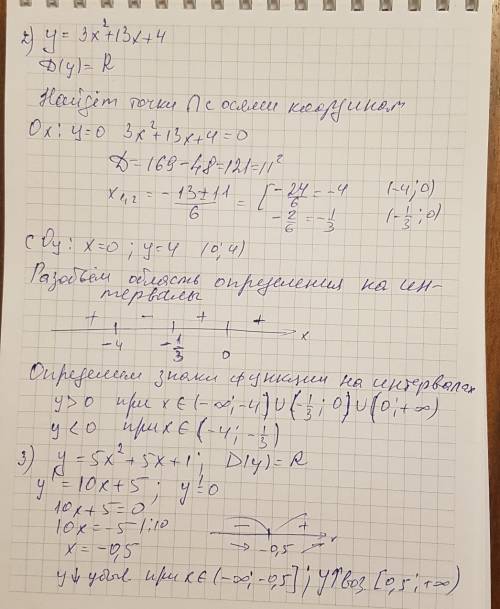 2) y = 3x²+13x+4
D(y)= R
Найдём точки ∩ с осями координат
Ox: y=0 3x²+13x+4=0
D=169-48=121=11²
x₁,₂ = -13±11/6 = [ -24/6 = -4 (-4; 0)
-2/6 = -1/3 (-1/3; 0)
с Oy: x=0; y=4 (0; 4)
Разобьём область определения на ин-
тервалы
+ - + +
-4 -1/3 0 x
Определим знаки функции на интервалах
y>0 при x∈(-∞; -4)∪(-1/3; 0)∪(0; +∞)
y<0 при x∈(-4; -1/3)
3) y = 5x²+5x+1; D(y)= R
y' = 10x+5; y'=0
10x+5=0
10x=-5 |:10
x=-0,5
- +
-0,5 x
y↓ убыв при x∈(-∞; -0,5]; y↑ воз. [0,5; +∞)